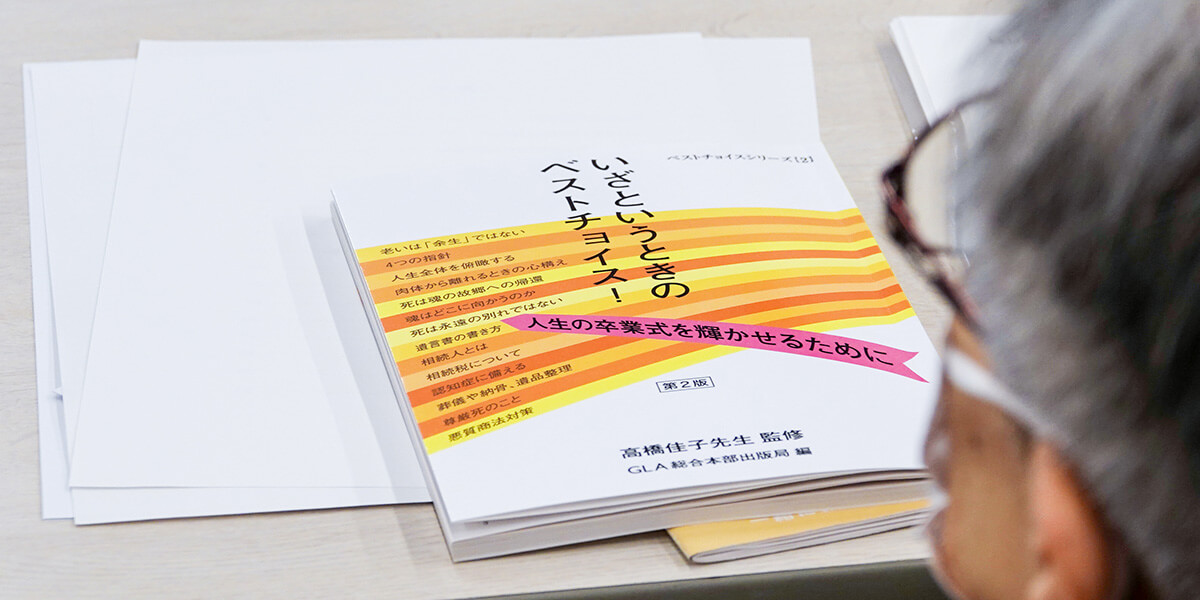 ベストチョイスシリーズ[2]
いざというときの
ベストチョイス!
老いは「余生」ではない
4つの指針
人生全体を俯瞰する
肉体から離れるときの心構え
死は魂の故郷への帰還
魂はどこに向かうのか
死は永遠の別れではない
遺言書の書き方
相続人とは
相続税について
認知症に備える
葬儀や納骨、遺品整理
尊厳死のこと
悪質商法対策
人生の卒業式を輝かせるために
第2版
高橋佳子先生 監修
GLA総合本部出版局 編